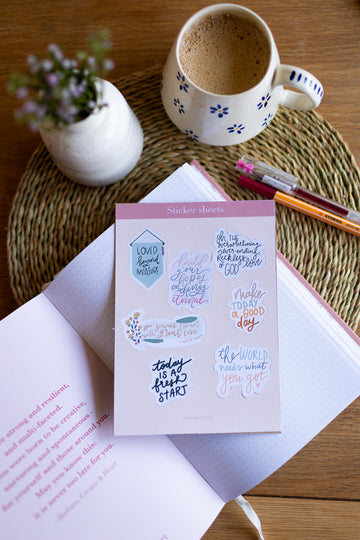 Sticker sheets
LOVED
beyond
measure
Oh, THE
overwhelming
never-ending
reckless
love
of GOD
build
your
hopes
on things
eternal
make
TODAY
A GOOD
DAY
do small things
with great love
today
IS A
fresh
START
the WORLD
needs what
you got
strong and resilient,
and multi-faceted.
were born to be creative,
nurturing and spontaneous –
for yourself and those around you.
May you know this:
it is never too late for you.